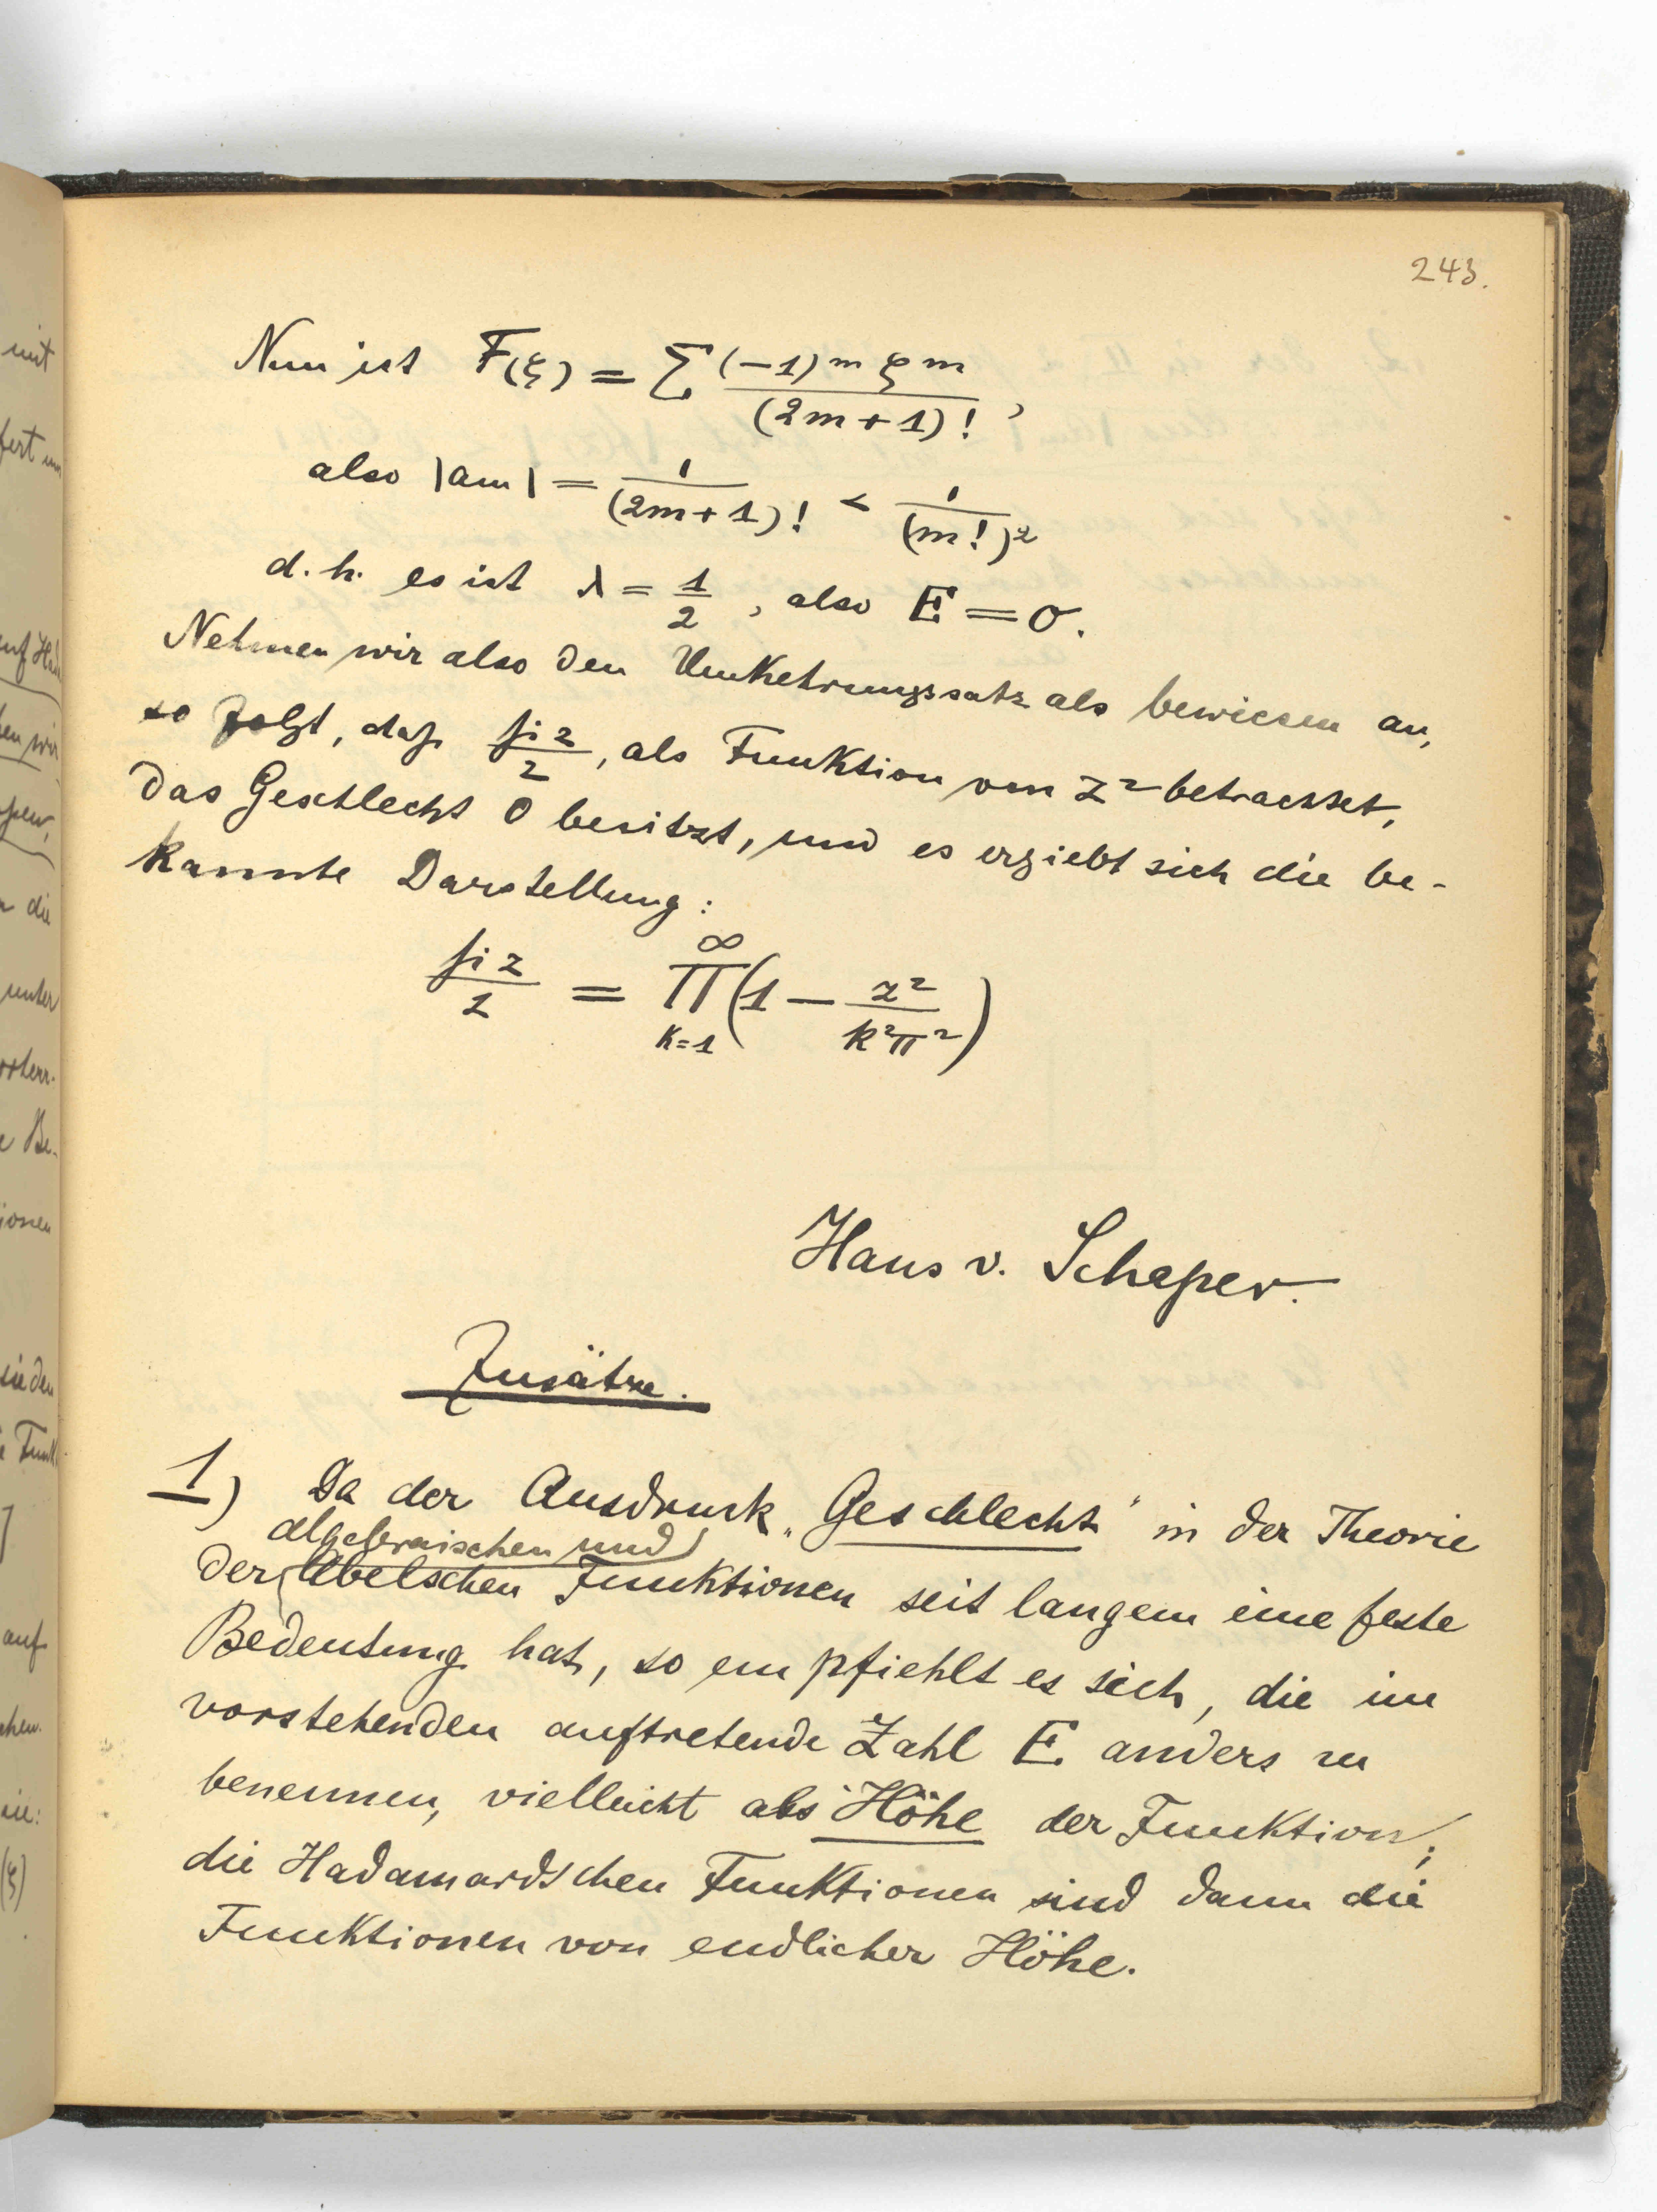 243.
Nun ist F(ξ) = ∑ (-1)^m ξ^m / (2m+1)! ,
also |am| = 1/(2m+1)! < 1/(m!)²
d. h. es ist λ = 1/2 , also E = 0.
Nehmen wir also den Umkehrungssatz als bewiesen an,
so folgt, daß si z/z, als Funktion von z² betrachtet,
das Geschlecht 0 besitzt, und es ergiebt sich die be-
kannte Darstellung:
si z/z = ∏_{k=1}^∞ (1 - z²/k²π²)
Hans v. Schaper.
Zusätze.
1) Da der Ausdruck „Geschlecht“ in der Theorie
algebraischen und
der Abelschen Funktionen seit langem eine feste
Bedeutung hat, so empfiehlt es sich, die im
vorstehenden auftretende Zahl E anders zu
benennen, vielleicht als Höhe der Funktion;
die Hadamardschen Funktionen sind dann die
Funktionen von endlicher Höhe.